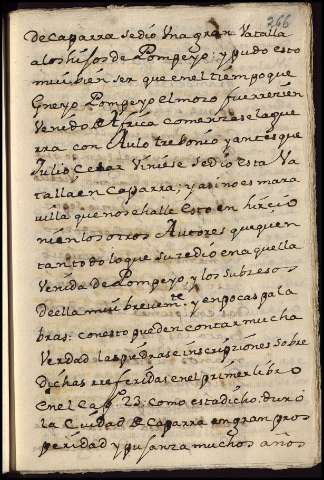 266
de caparra sedió Una gran Vatalla
alos hijos de Pompeyo; y pudo esto
mui bien ser que en el tiempo que
Gneyo Pompeyo el mozo fue rrezien
Venido de Africa comenzase la gue
rra con Aulo trebonio y antes que
Julio Cesar Viniese sedió esta Va
talla en Caparra; y asi no es mara
villa que no se halle esto en hircio
ni en los otros Autores que quen
tan todo lo que su zedió en aquella
Venida de Pompeyo y los subzesos
de ella mui brevemte. y en pocas pala
bras: con esto pueden contar mucha
Verdad las piedras e inscripziones sobre
dichas rreferidas en el primer libro
en el Cap. 23; como esta dicho: duró
la Ciudad de Caparra en gran pros
peridad y pujanza muchos años